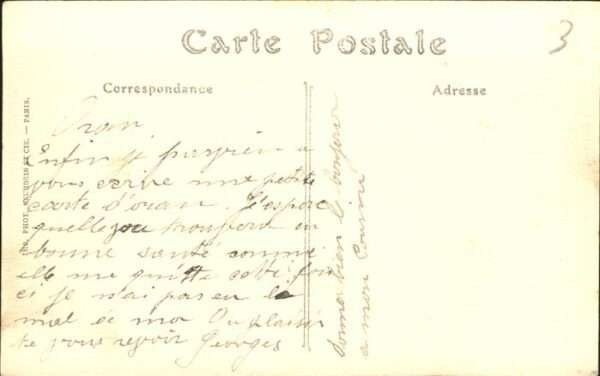 Carte Postale
3
Correspondance
Adresse
Oran
Enfin je parvien a
vous ecrire une petite
carte d'oran. J'espere
quelle vou trouvera en
bonne santé comme
elle me quitte cette foi
ci je n'ai pas eu le
mal de mer Au plaisir
de vous revoir Georges
Donner bien le bonjour
a mon
IMP. PHOT. ET CIE. — PARIS.